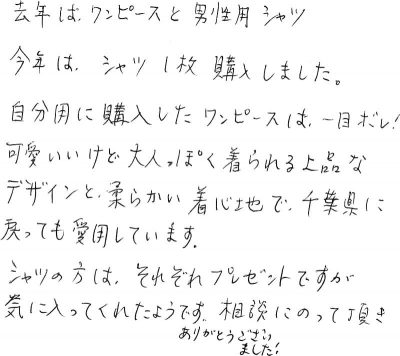 去年は、ワンピースと男性用シャツ
今年は、シャツ1枚購入しました。
自分用に購入したワンピースは、一目ボレ!
可愛いいけど大人っぽく着られる上品な
デザインと、柔らかい着心地で、千葉県に
戻っても愛用しています。
シャツの方は、それぞれプレゼントですが
気に入ってくれたようです。相談にのって頂き
ありがとうござい
ました!